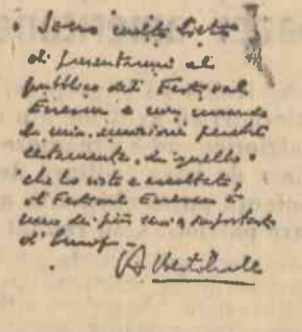 Sono molto lieto
di presentarmi al
pubblico del Festival
Enescu e
la mia emozione perché
certamente, da quello
che ho visto e ascoltato,
il Festival Enescu è
uno dei più seri e importanti
d'Europa –